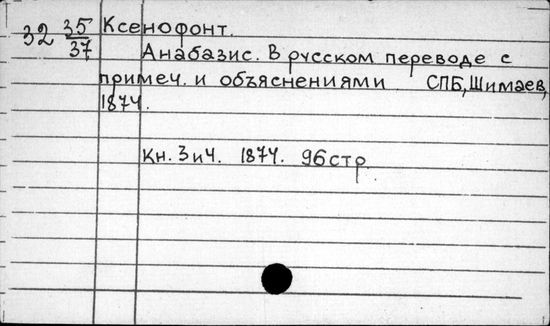 32 35/37 Ксенофонт.
Анабазис. В русском переводе с
примеч. и объяснениями СПБ, Шимаев,
1874.
Кн. 3 и 4. 1874. 96 стр